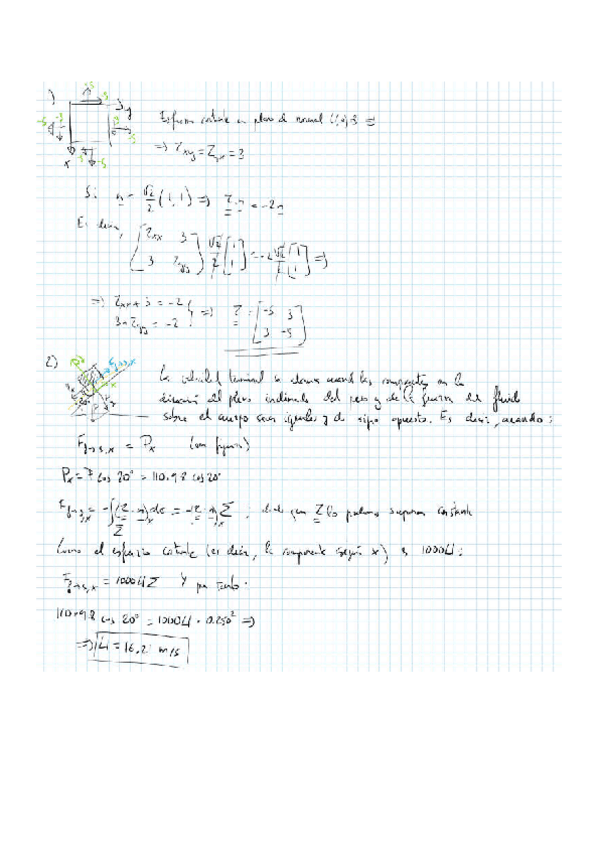 1)
-5
3
y
x
Esfuerzo cortante en plano de normal
=> τxy = τyx = 3
Si n = √2/2 (1, 1) => τ·n = -2n
Es decir,
[τxx 3; 3 τyy] √2/2 [1; 1] = -2 √2/2 [1; 1] =>
=> τxx + 3 = -2
3 + τyy = -2 } => τ = [-5 3; 3 -5]
2)
20°
La velocidad terminal se alcanza cuando las componentes en la
dirección del plano inclinado del peso y de la fuerza del fluido
sobre el cuerpo sean iguales y de signo opuesto. Es decir, cuando:
Ff→s,x = Px (ver figura)
Px = P cos 20° = 110·9.8 cos 20°
Ff→s,x = -∫(τ·n)x dσ = -τ·n|x Σ ; dado que τ lo podemos suponer constante
Σ
Como el esfuerzo cortante (es decir, la componente según x) es 1000U:
Ff→s,x = 1000UΣ Y por tanto:
110·9.8 cos 20° = 1000U · 0.250² =>
=> U = 16.21 m/s